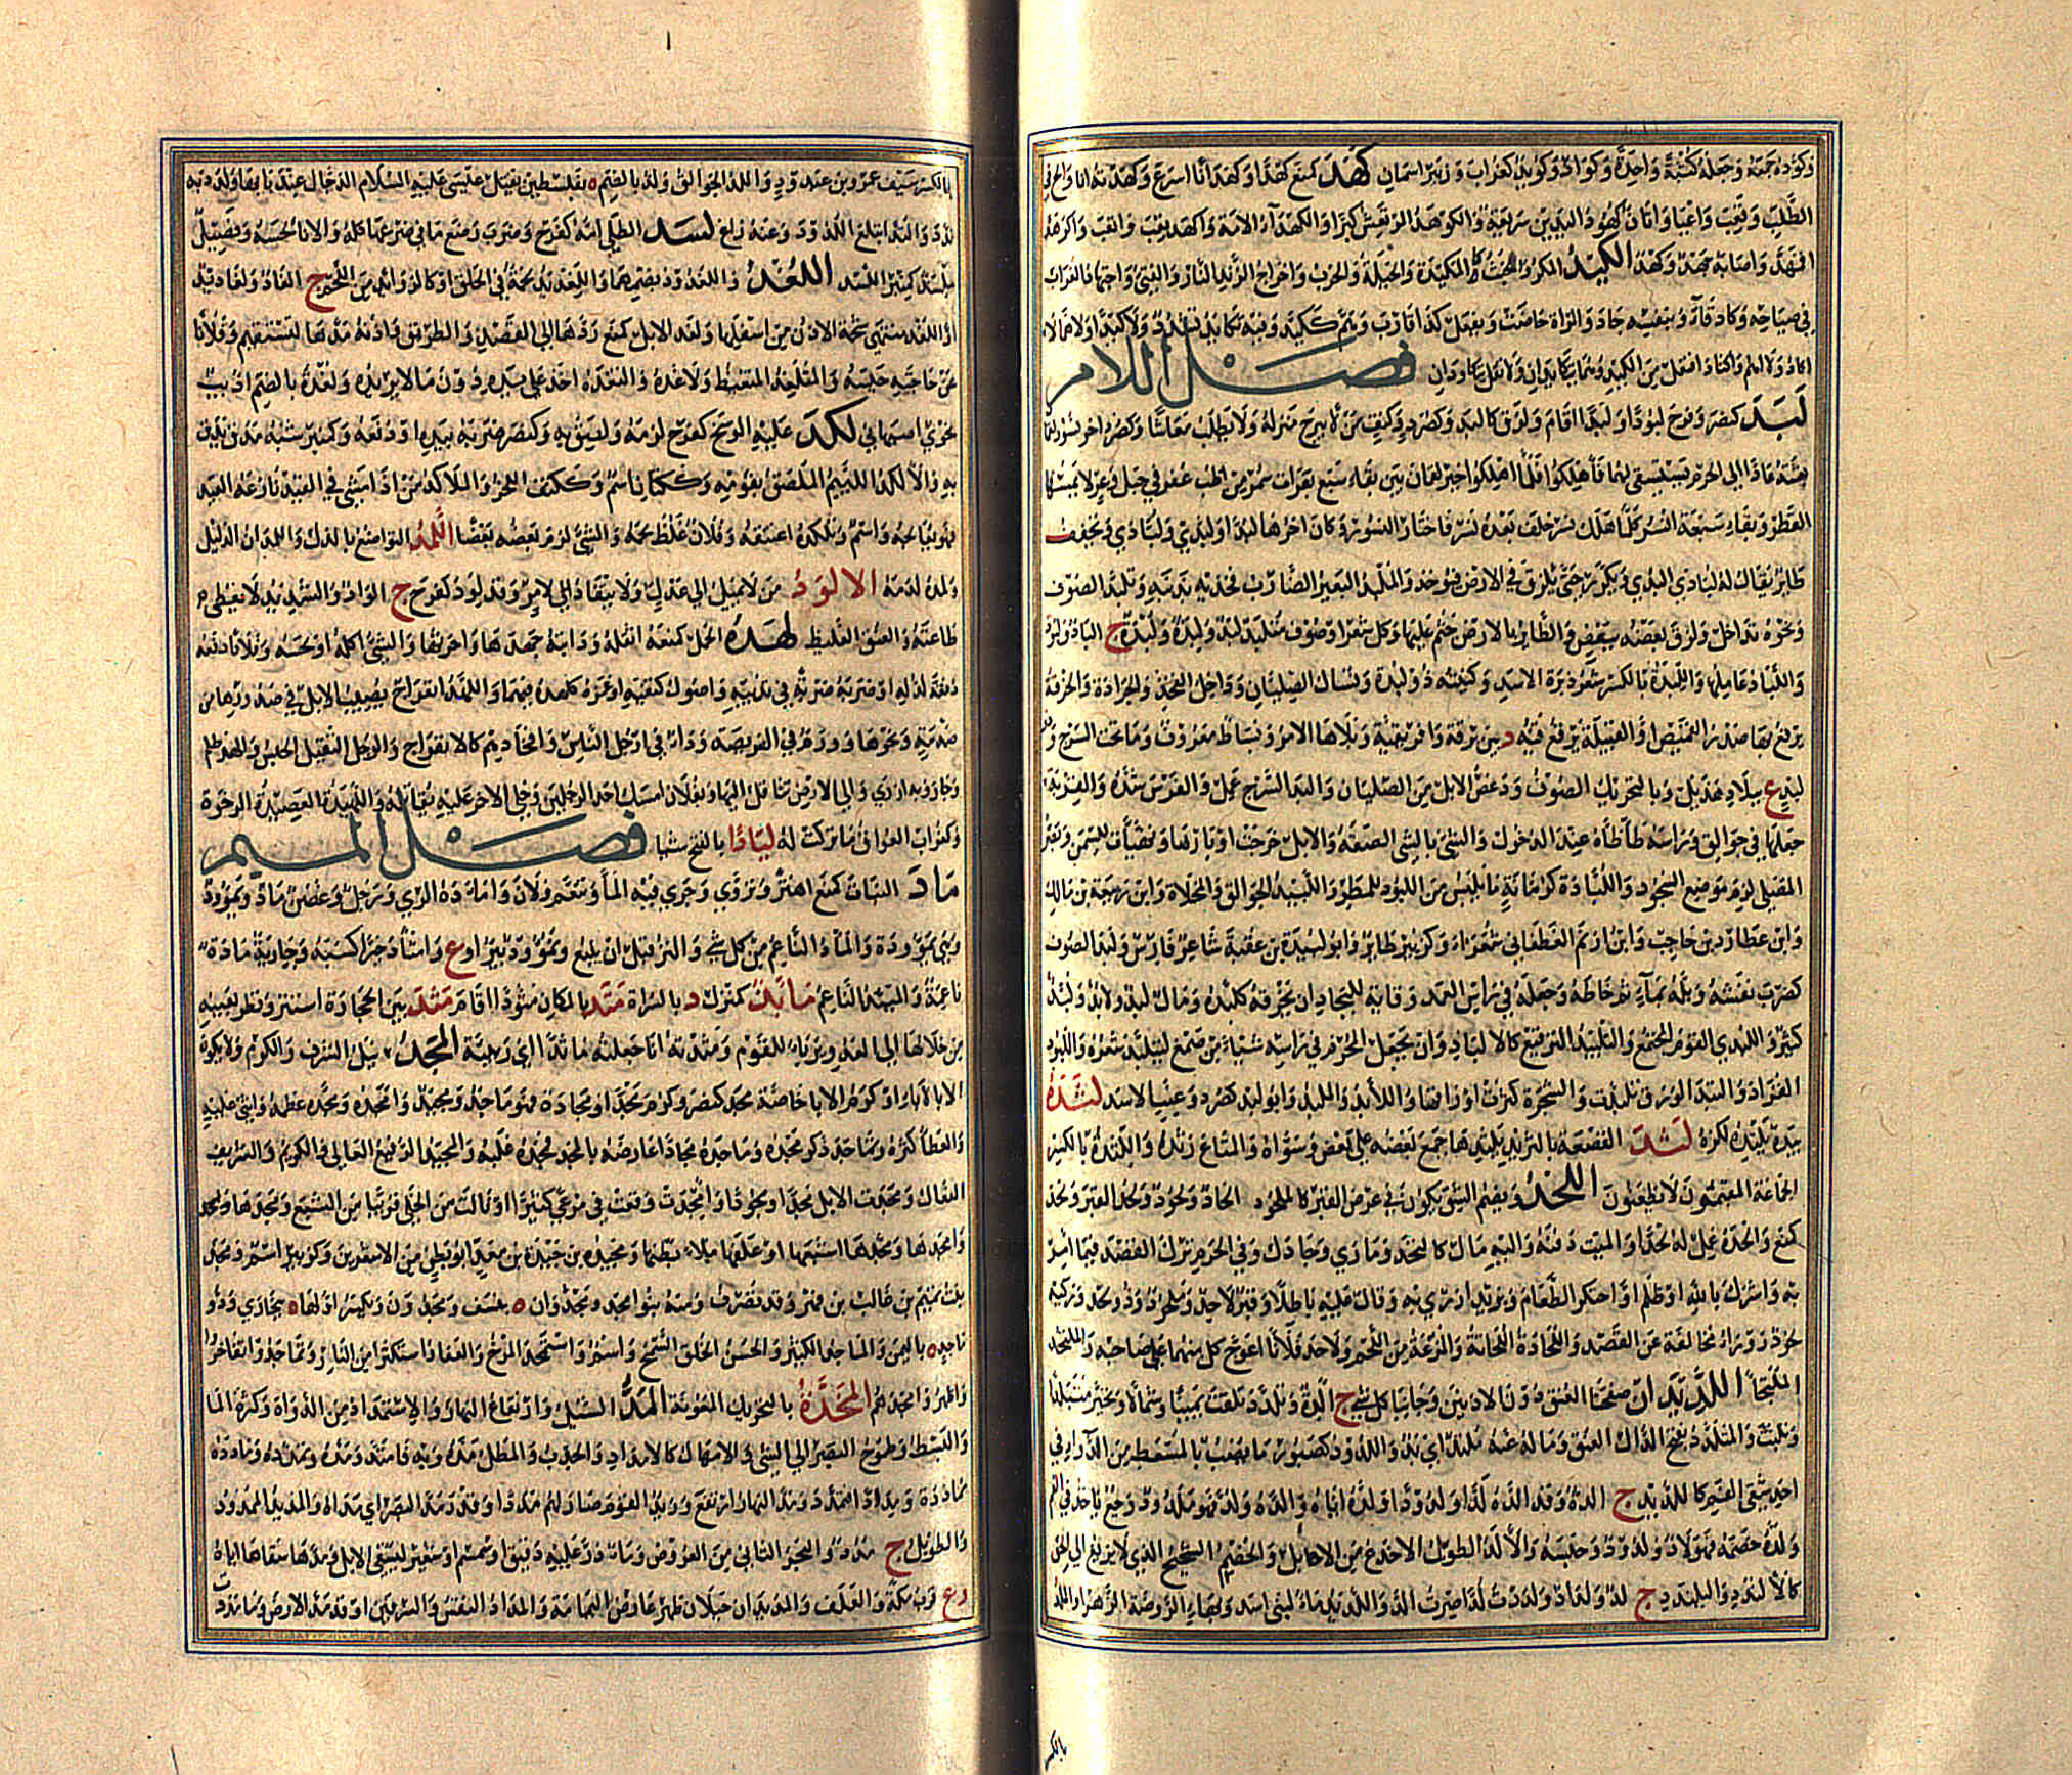 وكوده جمعه وجعله كثبة واحدة وكواد وكويد كغراب وزبير اسمان كهد كمنع كهدا وكهدانا اسرع وكهدته انا والح في
الطلب وتعب واعيا واتان كهود اليدين سريعة والكوهد المرتعش كبرا والكهداء الامة واكهد تعب واتعب واكوهد
اقهد واصابه جهد وكهد الكيد المكر والخبث كالمكيدة والحيلة والحرب واخراج الزند النار والقيء واجتهاد الغراب
في صياحه وكاد قاء وبنفسه جاد والمراة حاضت ويفعل كذا قارب وهم ككيد وفيه تكايد تشدد ولا كيدا ولا هما لا
اكاد ولا اهم واكتاد افتعل من الكيد وهما يتكايدان ولا تقل يتكاودان فصل اللام
لبد كنصر وفرح لبودا ولبدا اقام ولزق كالبد وكصرد وكتف من لا يبرح منزله ولا يطلب معاشا وكصرد اخر نسور لقمان
بعثته عاد الى الحرم يستسقي لها فلما اهلكوا خير لقمان بين بقاء سبع بقرات سمر من اظب عفر في جبل وعر لا يمسها
القطر وبقاء سبعة انسر كلما هلك نسر خلف بعده نسر فاختار النسور وكان اخرها لبدا ولبدى ولبادى ويخفف
طائر يقال له لبادى البدي ويكرر حتى يلزق في الارض فيؤخذ والملبد البعير الضارب فخذيه بذنبه وتلبد الصوف
ونحوه تداخل ولزق بعضه ببعض والطائر بالارض جثم عليها وكل شعر او صوف متلبد لبد ولبدة ولبدة ج الباد ولبود
واللباد عاملها واللبدة بالكسر شعر زبرة الاسد وكنيته ذو لبدة ونسال الصليان وداخل الفخذ والجرادة والخرقة
يرقع بها صدر القميص او القبيلة يرقع قبه د بين برقة وافريقية وبلا هاء الامر وبساط معروف وما تحت السرج وذو
لبد ع ببلاد هذيل وبالتحريك الصوف ودعص الابل من الصليان والبد السرج عمل والفرس شده والقربة
جعلها في جوالق وراسه طاطاه عند الدخول والشيء بالشيء الصقه والابل خرجت اوبارها وتهيات للسمن وبصر
المصلي لزم موضع السجود واللبادة كرمانة ما يلبس من اللبود للمطر واللبيد الجوالق والمخلاة وابن ربيعة بن مالك
وابن عطارد بن حاجب وابن ازنم الغطفاني شعراء وكزبير طائر وابو لبيد بن عقبة شاعر فارس ولبد الصوف
كضرب نفشه وبله بماء ثم خاطه وجعله في راس العمد وقاية للبجاد ان يخرقه كلبده ومال لبد ولابد ولبد
كثير واللبدى القوم المجتمع والتلبيد الترقيع كالالباد وان يجعل المحرم في راسه شيئا من صمغ ليتلبد شعره واللبود
القراد والتبد الورق تلبدت والشجرة كثرت اوراقها واللابد والملبد وابو لبد كصرد وعنب الاسد لتده
بيده يلتده لكزه لثد القصعة بالثريد يلثدها جمع بعضه على بعض وسواه والمتاع رثده واللثدة بالكسر
الجماعة المقيمون لا يظعنون اللحد ويضم الشق يكون في عرض القبر كالملحود الحاد ولحود ولحد القبر ولحد
كمنع والحده عمل له لحدا والميت دفنه واليه مال كالتحد ومارى وجادل وفي الحرم ترك القصد فيما امر
به واشرك بالله او ظلم او احتكر الطعام وبزيد ازرى به وقال عليه باطلا وقبر لاحد وملحود ذو لحد وركية
لحود زوراء مخالفة عن القصد واللحادة اللحاتة والمزعة من اللحم ولاحد فلانا اعوج كل منهما على صاحبه والملتحد
الملتجا اللديدان صفحتا العنق دون الاذنين وجانبا كل شيء ج الدة وتلدد تلفت يمينا وشمالا وتحير متبلدا
وتلبث والمتلدد بفتح الدال العنق وماله عنه ملتد اي بد واللدود كصبور ما يصب بالمسعط من الدواء في
احد شقي الفم كاللديد ج الدة وقد لده لدا ولدودا ولده اياه والده ولد فهو ملدود ووجع ياخذ في الفم
ولده خصمه فهو لاد ولدود وحبسه والالد الطويل الاخدع من الابل والخصيم الشحيح الذي لا يزيغ الى الحق
كالالندد واليلندد ج لد ولداد ولددت لدا صرت الد واللديد ماء لبني اسد وبهاء الروضة الزهراء والملد
بالكسر
بالكسر سيف عمرو بن عبد ود واللد الجوالق ولد بالضم ه بفلسطين يقتل عيسى عليه السلام الدجال عند بابها ولدد به
ندد والتد ابتلع اللدود وعنه زاغ لسد الطلى امه كفرح وضرب رضع ما في ضرعها كله والاناء لحسه وفصيل
ملسد كمنبر اللسد اللغد واللغدود بضمهما واللغديد لحمة في الحلق او كالزوائد من اللحم ج الغاد ولغاديد
او اللغد منتهى شحمة الاذن من اسفلها ولغد الابل كمنع ردها الى القصد والطريق واذنه مدها لتستقيم وفلانا
عن حاجته حبسه والمتلغد المتغيظ ولاغده والتغده اخذ على يده دون ما يريده ولغدة بالضم اديب
نحوي اصبهاني لكد عليه الوسخ كفرح لزمه ولصق به وكنصر ضربه بيده او دفعه وكمنبر شبه مدق يدق
به والالكد اللئيم الملصق بقومه وككتاب اسم وككتف اللحز والملاكد من اذا مشى في القيد نازعه القيد
فهو يعالجه واسم وتلكده اعتنقه وفلان غلظ لحمه والشيء لزم بعضه بعضا اللمد التواضع بالذل واللمدان الذليل
ولمده لدمه الالود من لا يميل الى عدل ولا ينقاد الى لامر وقد لود كفرح ج الواد والشديد لا يعطي
طاعته والعنق الغليظ لهده الحمل كمنعه اثقله ودابته جهدها واحرثها والشيء اكله او لحسه وفلانا دفعه
دفعة لذله او ضربه ضربة في ثدييه او اصول كتفيه او غمزه كلهده فيهما واللهد انفراج يصيب الابل في صدورها من
صدمة ونحوها وورم في الفريصة وداء في ارجل الناس وافخاذهم كالانفراج والرجل الثقيل الجبس والهد ظلم
وجار وبه ازرى والى الارض تثاقل اليها وبفلان امسك احد الرجلين وخلى الاخر عليه يقاتله واللهيدة العصيدة الرخوة
وكغراب الفواق ما تركت له ليادا بالفتح شيئا فصل الميم
ماد النبات كمنع اهتز وتروى وجرى فيه الماء وتنعم ولان واماده الري ورجل وغصن ماد ويمؤود
وهي يمؤودة والماد الناعم من كل شيء والنز قبل ان ينبع ويمؤود بئر او ع وامتاد خيرا كسبه وجارية مادة
ناعمة والمئيد الناعم مابد كمنزل د بالسراة متد بالمكان متودا اقام مثد بين الحجارة استتر ونظر بعينيه
من خلالها الى العدو يربا للقوم ومثدته انا جعلته ماثدا اي ربيئة المجد نيل الشرف والكرم ولا يكون
الا بالاباء او كرم الاباء خاصة مجد كنصر وكرم مجدا ومجادة فهو ماجد ومجيد وامجده ومجده عظمه واثنى عليه
والعطاء كثره وتماجد ذكر مجده وماجده مجادا عارضه بالمجد فمجده غلبه والمجيد الرفيع العالي والكريم والشريف
الفعال ومجدت الابل مجدا ومجودا وامجدت وقعت في مرعى كثير او نالت من الخلى قريبا من الشبع ومجدها ومجدها
وامجدها ومجدها اشبعها او علفها ملء بطنها ومجيد بن حيدة بن معد ابو بطن من الاشعرين وكزبير اسم ومجد
بنت تميم بن غالب بن فهر وقد تصرف ومنه بنو مجد ومجدوان ه بنسف ومجدون وتكسر اولها ه ببخارى وذو
ماجد ه باليمن والماجد الكثير والحسن الخلق السمح واسم واستمجد المرخ والعفار استكثرا من النار وتماجدوا تفاخروا
واظهروا مجدهم المخدة بالتحريك المعونة المد السيل وارتفاع النهار والاستمداد من الدواة وكثرة الماء
والبسط وطموح البصر الى الشيء والامهال كالامداد والجذب والمطل مده وبه فامتد ومده وتمدده وماده
ممادة ومدادا فتمدد ومد النهار ارتفع وزيد القوم صار لهم مددا وقد مد البصر اي مداه والمديد الممدود
والطويل ج مدد والبحر الثاني من العروض وما ذر عليه دقيق او سمسم او شعير ليسقى الابل ومدها سقاها اياه
وع قرب مكة والعلف والمديدان جبلان ظهر عارض اليمامة والمداد النقس والسرقين وقد مد الارض وما مددت